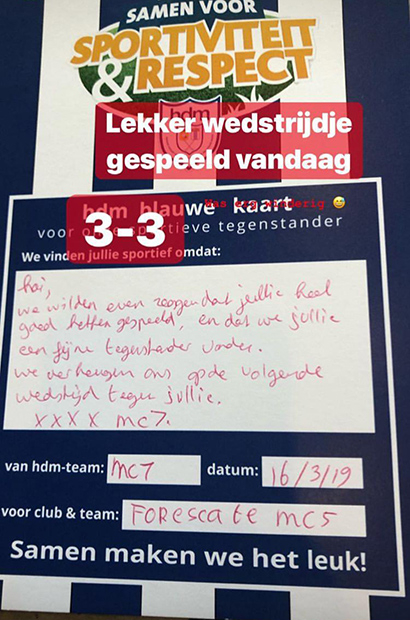 SAMEN VOOR
SPORTIVITEIT
& RESPECT
hdm
Lekker wedstrijdje
gespeeld vandaag
hdm blauwe kaart
Was erg winderig 😅
voor onze sportieve tegenstander
3-3
We vinden jullie sportief omdat:
hai,
we wilden even zeggen dat jullie heel
goed hebben gespeeld, en dat we jullie
een fijne tegenstander vonden.
we verheugen ons op de volgende
wedstijd tegen jullie.
xxxx mc7.
van hdm-team: MC7 datum: 16/3/19
voor club & team: Forescate mc5
Samen maken we het leuk!